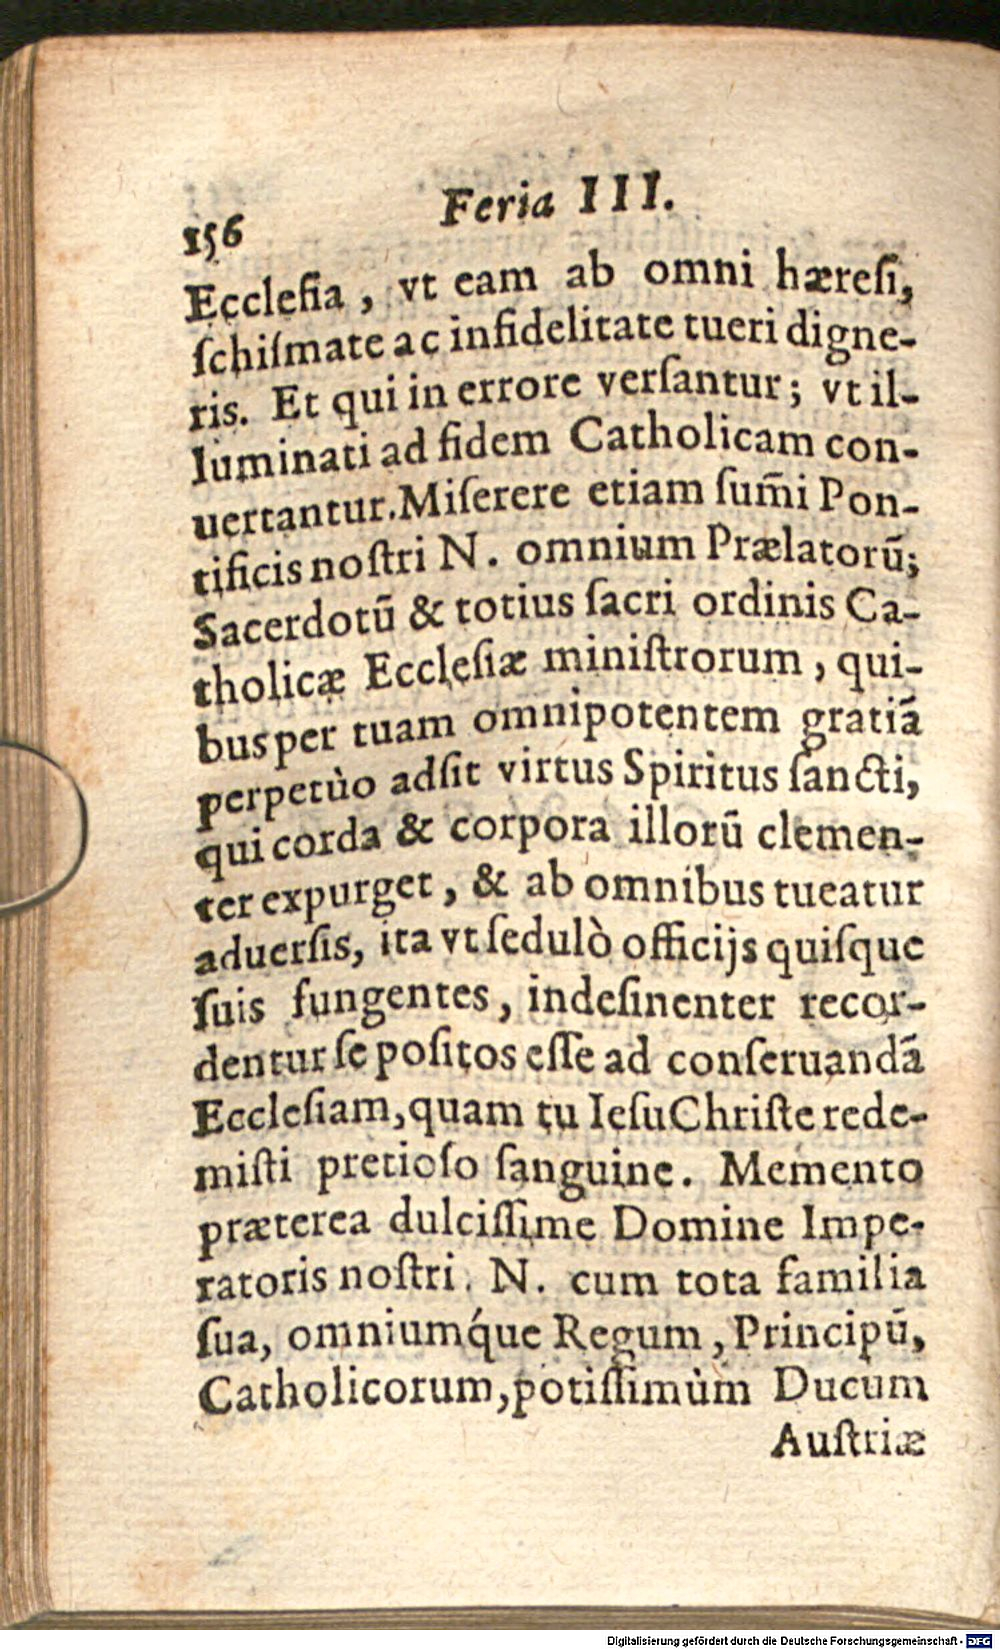 156 Feria III.
Eccleſia, vt eam ab omni hæreſi,
ſchiſmate ac infidelitate tueri digne-
ris. Et qui in errore verſantur; vt il-
luminati ad fidem Catholicam con-
uertantur. Miſerere etiam ſum̃i Pon-
tificis noſtri N. omnium Prælatorũ;
Sacerdotũ & totius ſacri ordinis Ca-
tholicæ Eccleſiæ miniſtrorum, qui-
bus per tuam omnipotentem gratiã
perpetùo adſit virtus Spiritus ſancti,
qui corda & corpora illorũ clemen-
ter expurget, & ab omnibus tueatur
aduerſis, ita vt ſedulò officijs quiſque
ſuis fungentes, indeſinenter recor-
dentur ſe poſitos eſſe ad conſeruandã
Eccleſiam, quam tu Ieſu Chriſte rede-
miſti pretioſo ſanguine. Memento
præterea dulciſſime Domine Impe-
ratoris noſtri. N. cum tota familia
ſua, omniumq́ue Regum, Principũ,
Catholicorum, potiſſimùm Ducum
Auſtriæ
Digitalisierung gefördert durch die Deutsche Forschungsgemeinschaft - DFG